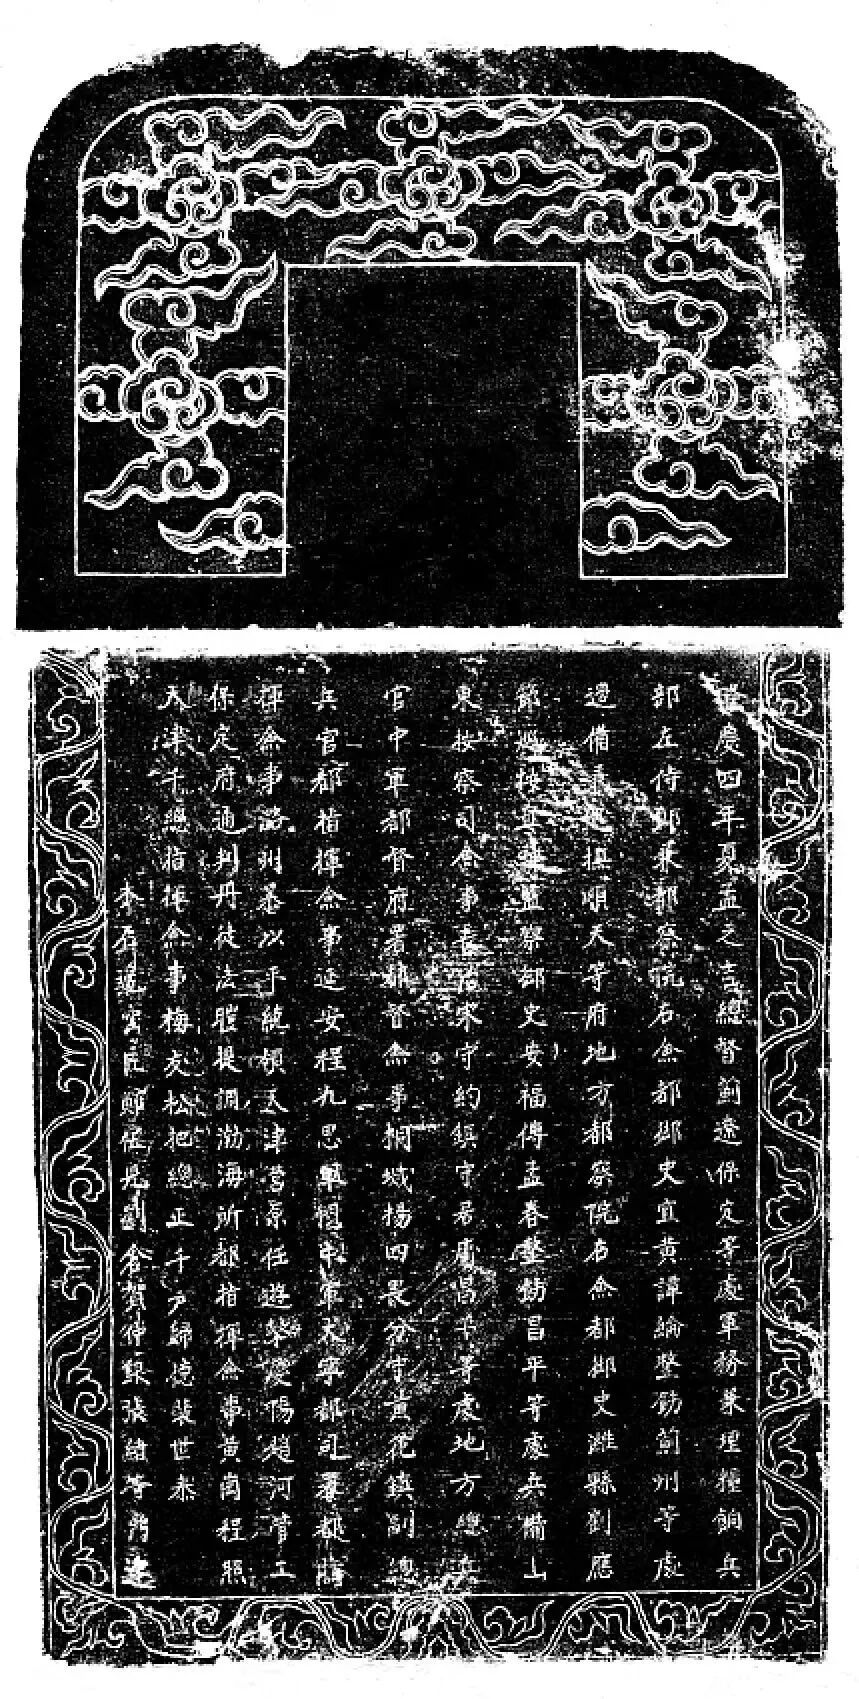 隆慶四年夏孟之吉總督薊遼保定等處軍務兼理糧餉兵
部左侍郎兼都察院右僉都御史宜黃譚綸整飭薊州等處
邊備兼巡撫順天等府地方都察院右僉都御史濰縣劉應
節巡按直隸監察御史安福傅孟春整飭昌平等處兵備山
東按察司僉事宋守約鎮守居庸昌平等處地方總兵
官中軍都督府署都督僉事桐城楊四畏分守黃花鎮副總
兵官都指揮僉事延安程九思軍中軍大寧都司署都指
揮僉事以平統領天津營原任遊擊慶陽趙河管工
保定府通判丹徒法提調渤海所都指揮僉事黃崗程照
天津千總指揮僉事梅友松把總正千戶歸德裴世泰
張緒等建